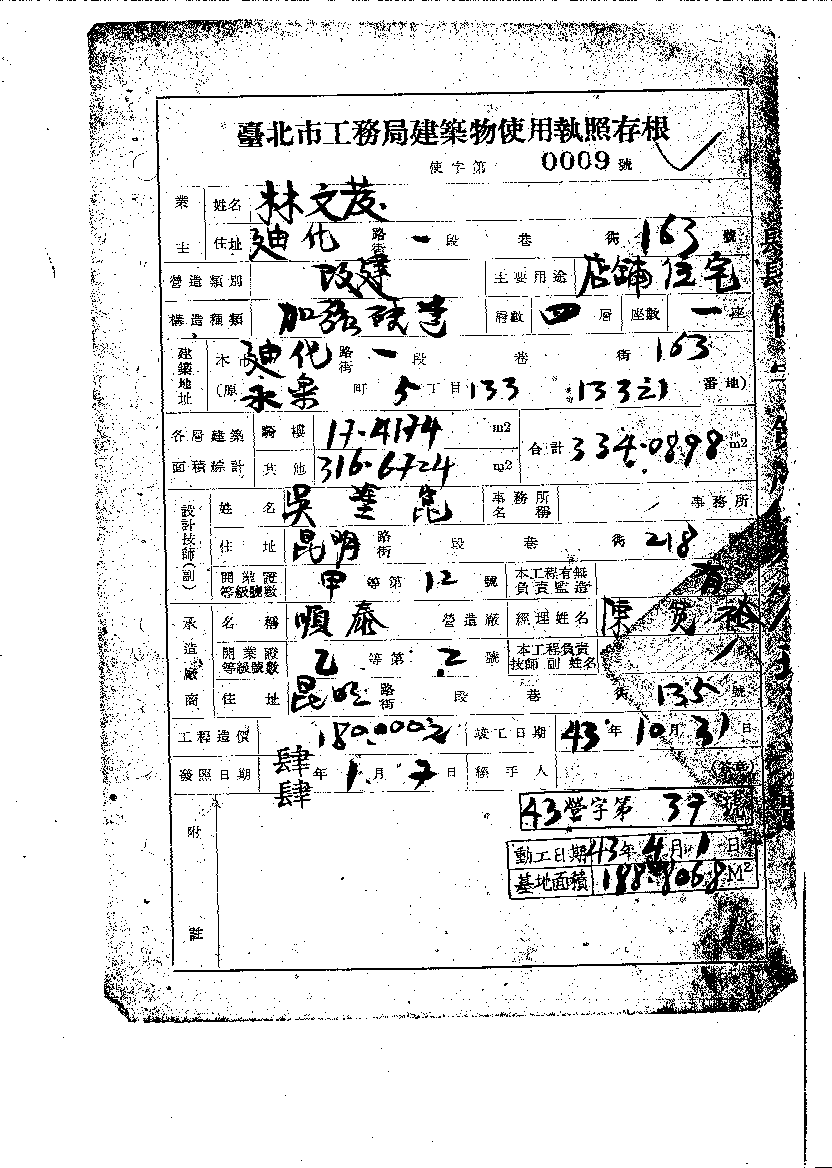 臺北市工務局建築物使用執照存根
使字第 0009 號
業主 姓名 林文茂
住址 迪化 路街 一 段 巷 街 163 號
營造類別 改建 主要用途 店鋪住宅
構造種類 加強磚造 層數 四 層 座數 一 座
建築地址 本市 迪化 路街 一 段 巷 街 163
(原 永樂 町 5 丁目 133 133之1 番地)
各層建築面積綜計 騎樓 17.4174 m2 合計 334.0898 m2
其他 316.6724 m2
設計技師(副) 姓名 吳 事務所名稱 / 事務所
住址 昆明 路街 段 巷 街 218
開業證等級號數 甲 等第 12 號 本工程有無負責監造 有
承造廠商 名稱 順泰 營造廠 經理姓名 陳
開業證等級號數 乙 等第 2 號 本工程負責技師 副 姓名 /
住址 昆明 路街 段 巷 街 135 號
工程造價 180.000元 竣工日期 43 年 10 月 31 日
發照日期 肆肆 年 1 月 7 日 經手人
43營字第 37 號
動工日期 43年 4月 1日
基地面積 188.8068 M2
附註